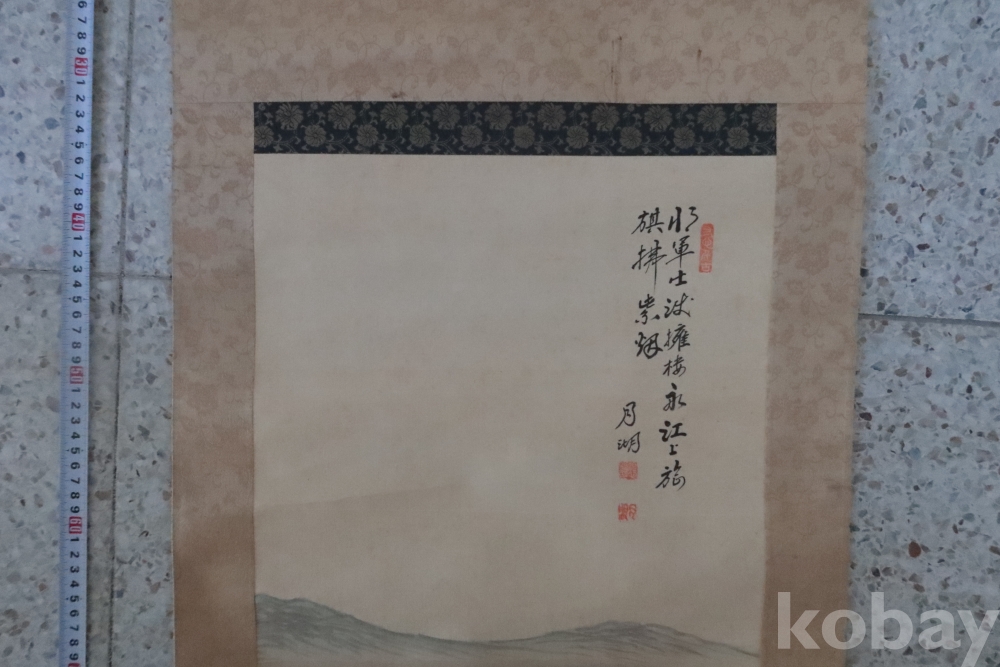 将軍出使擁楼船江上旌
旗拂紫烟
月湖
kobay
6
7
8
9
30
1
2
3
4
5
6
7
8
9
40
1
2
3
4
5
6
7
8
9
50
1
2
3
4
5
6
7
8
9
60
1
2
3
4
5
6
7
8
9